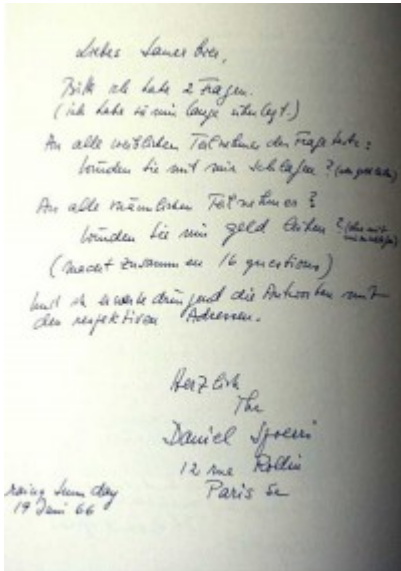 Liebes
Bitte ich habe 2 Fragen.
(ich habe es mir lange überlegt.)
An alle weiblichen Teilnehmer der Frageliste:
würden Sie mit mir schlafen?
An alle männlichen Teilnehmer?
würden Sie mir geld leihen? (ohne mit
(macht zusammen 16 questions)
Und ich erwarte dringend die Antworten mit
den respektiven Adressen.
Herzlich
Ihr
Daniel Spoerri
12 rue Rollin
Paris 5e
rainy Sunday
19 Juni 66